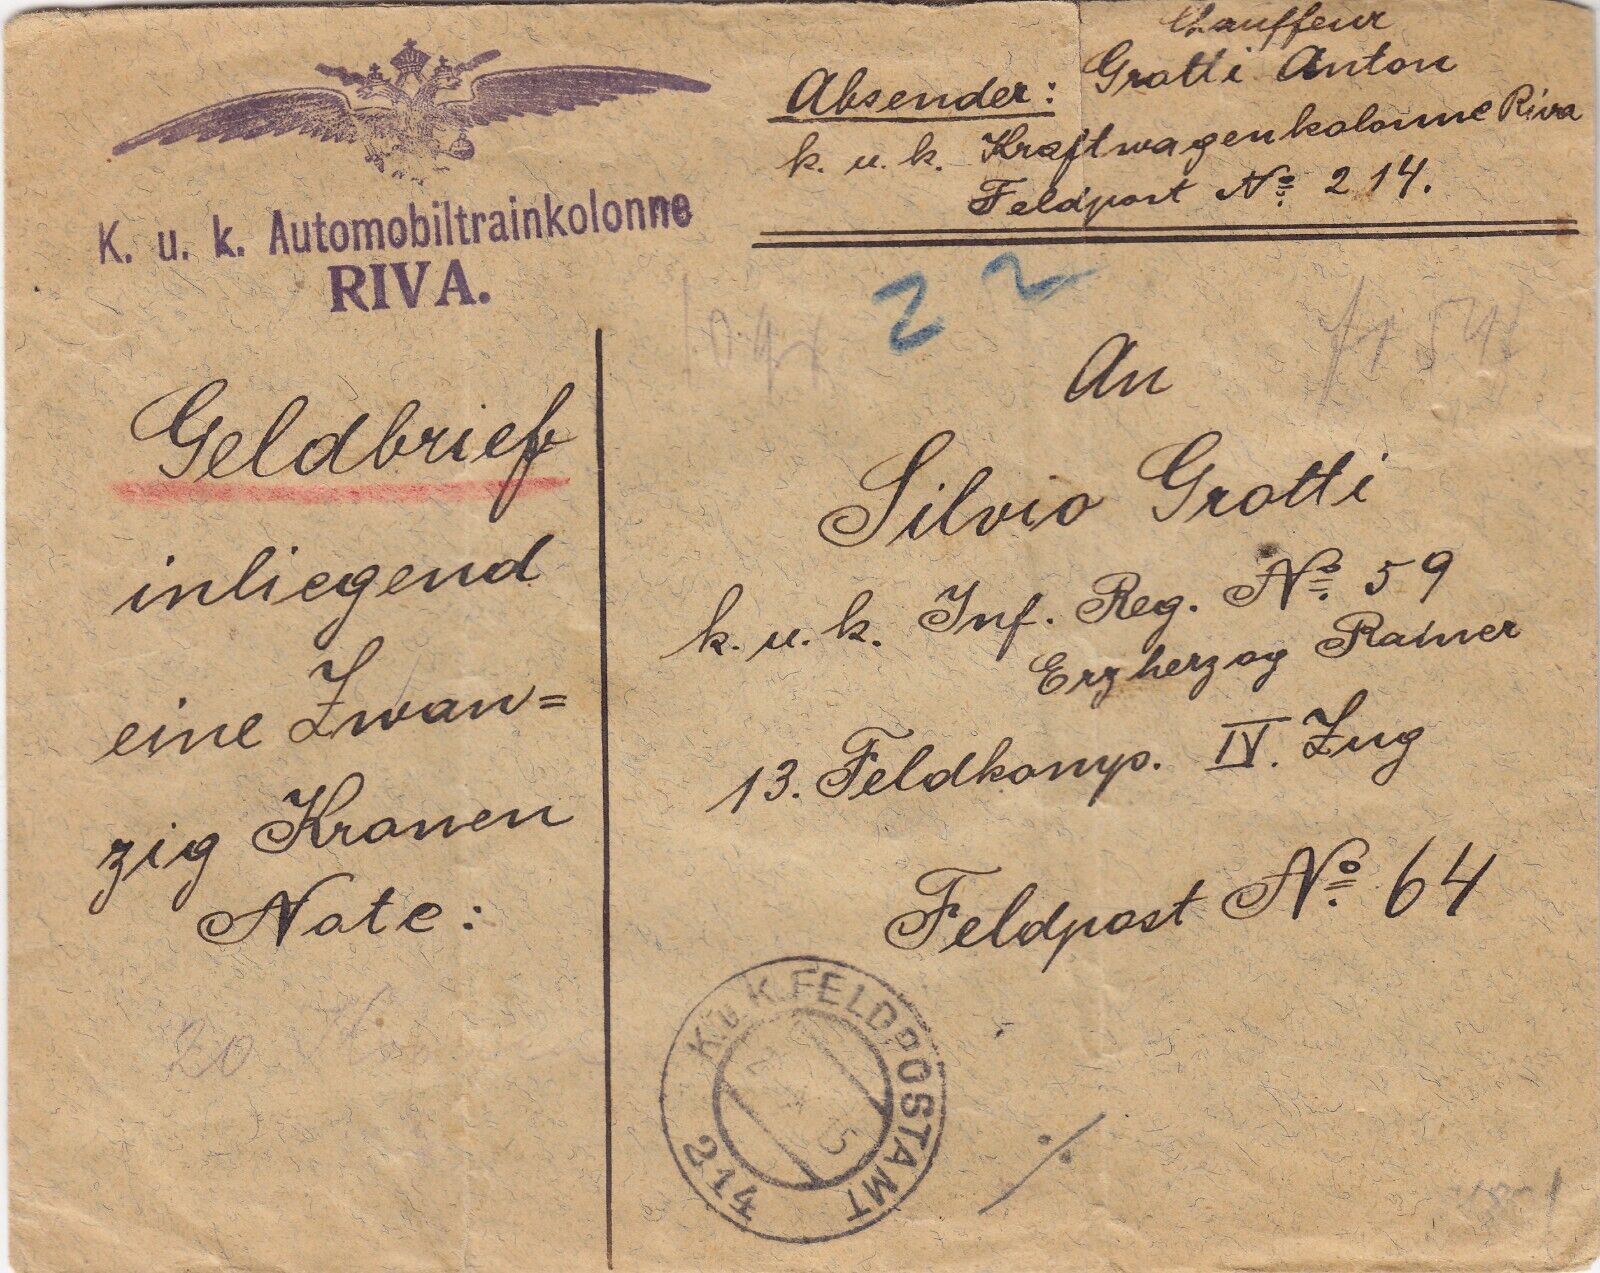 K. u. k. Automobiltrainkolonne
RIVA.
Chauffeur
Absender: Grotti Anton
k. u. k. Kraftwagenkolonne Riva
Feldpost No 214.
22
Geldbrief
inliegend
eine Zwan=
zig Kronen
Note:
20 Kronen
An
Silvio Grotti
k. u. k. Inf. Reg. No. 59
Erzherzog Rainer
13. Feldkomp. IV. Zug
Feldpost No. 64
K.u.K. FELDPOSTAMT
15
214